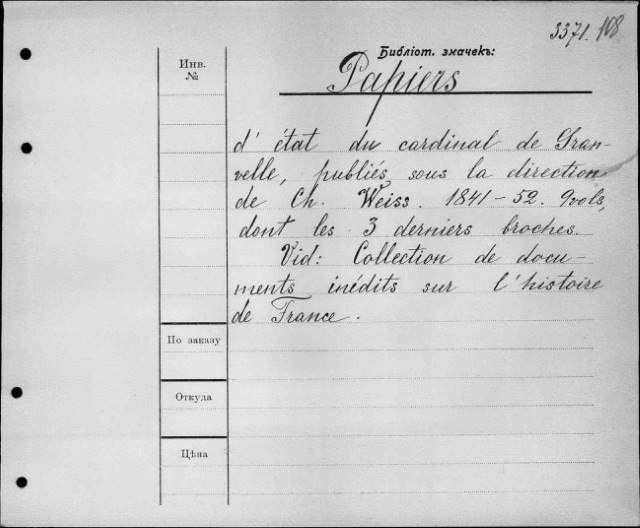 3371. 108
Библіот. значекъ:
Инв.
№
Papiers
d'état du cardinal de Gran-
velle, publiés sous la direction
de Ch. Weiss. 1841-52. 9vols,
dont les 3 derniers broches.
Vid: Collection de docu-
ments inédits sur l'histoire
de France.
По заказу
Откуда
Цѣна